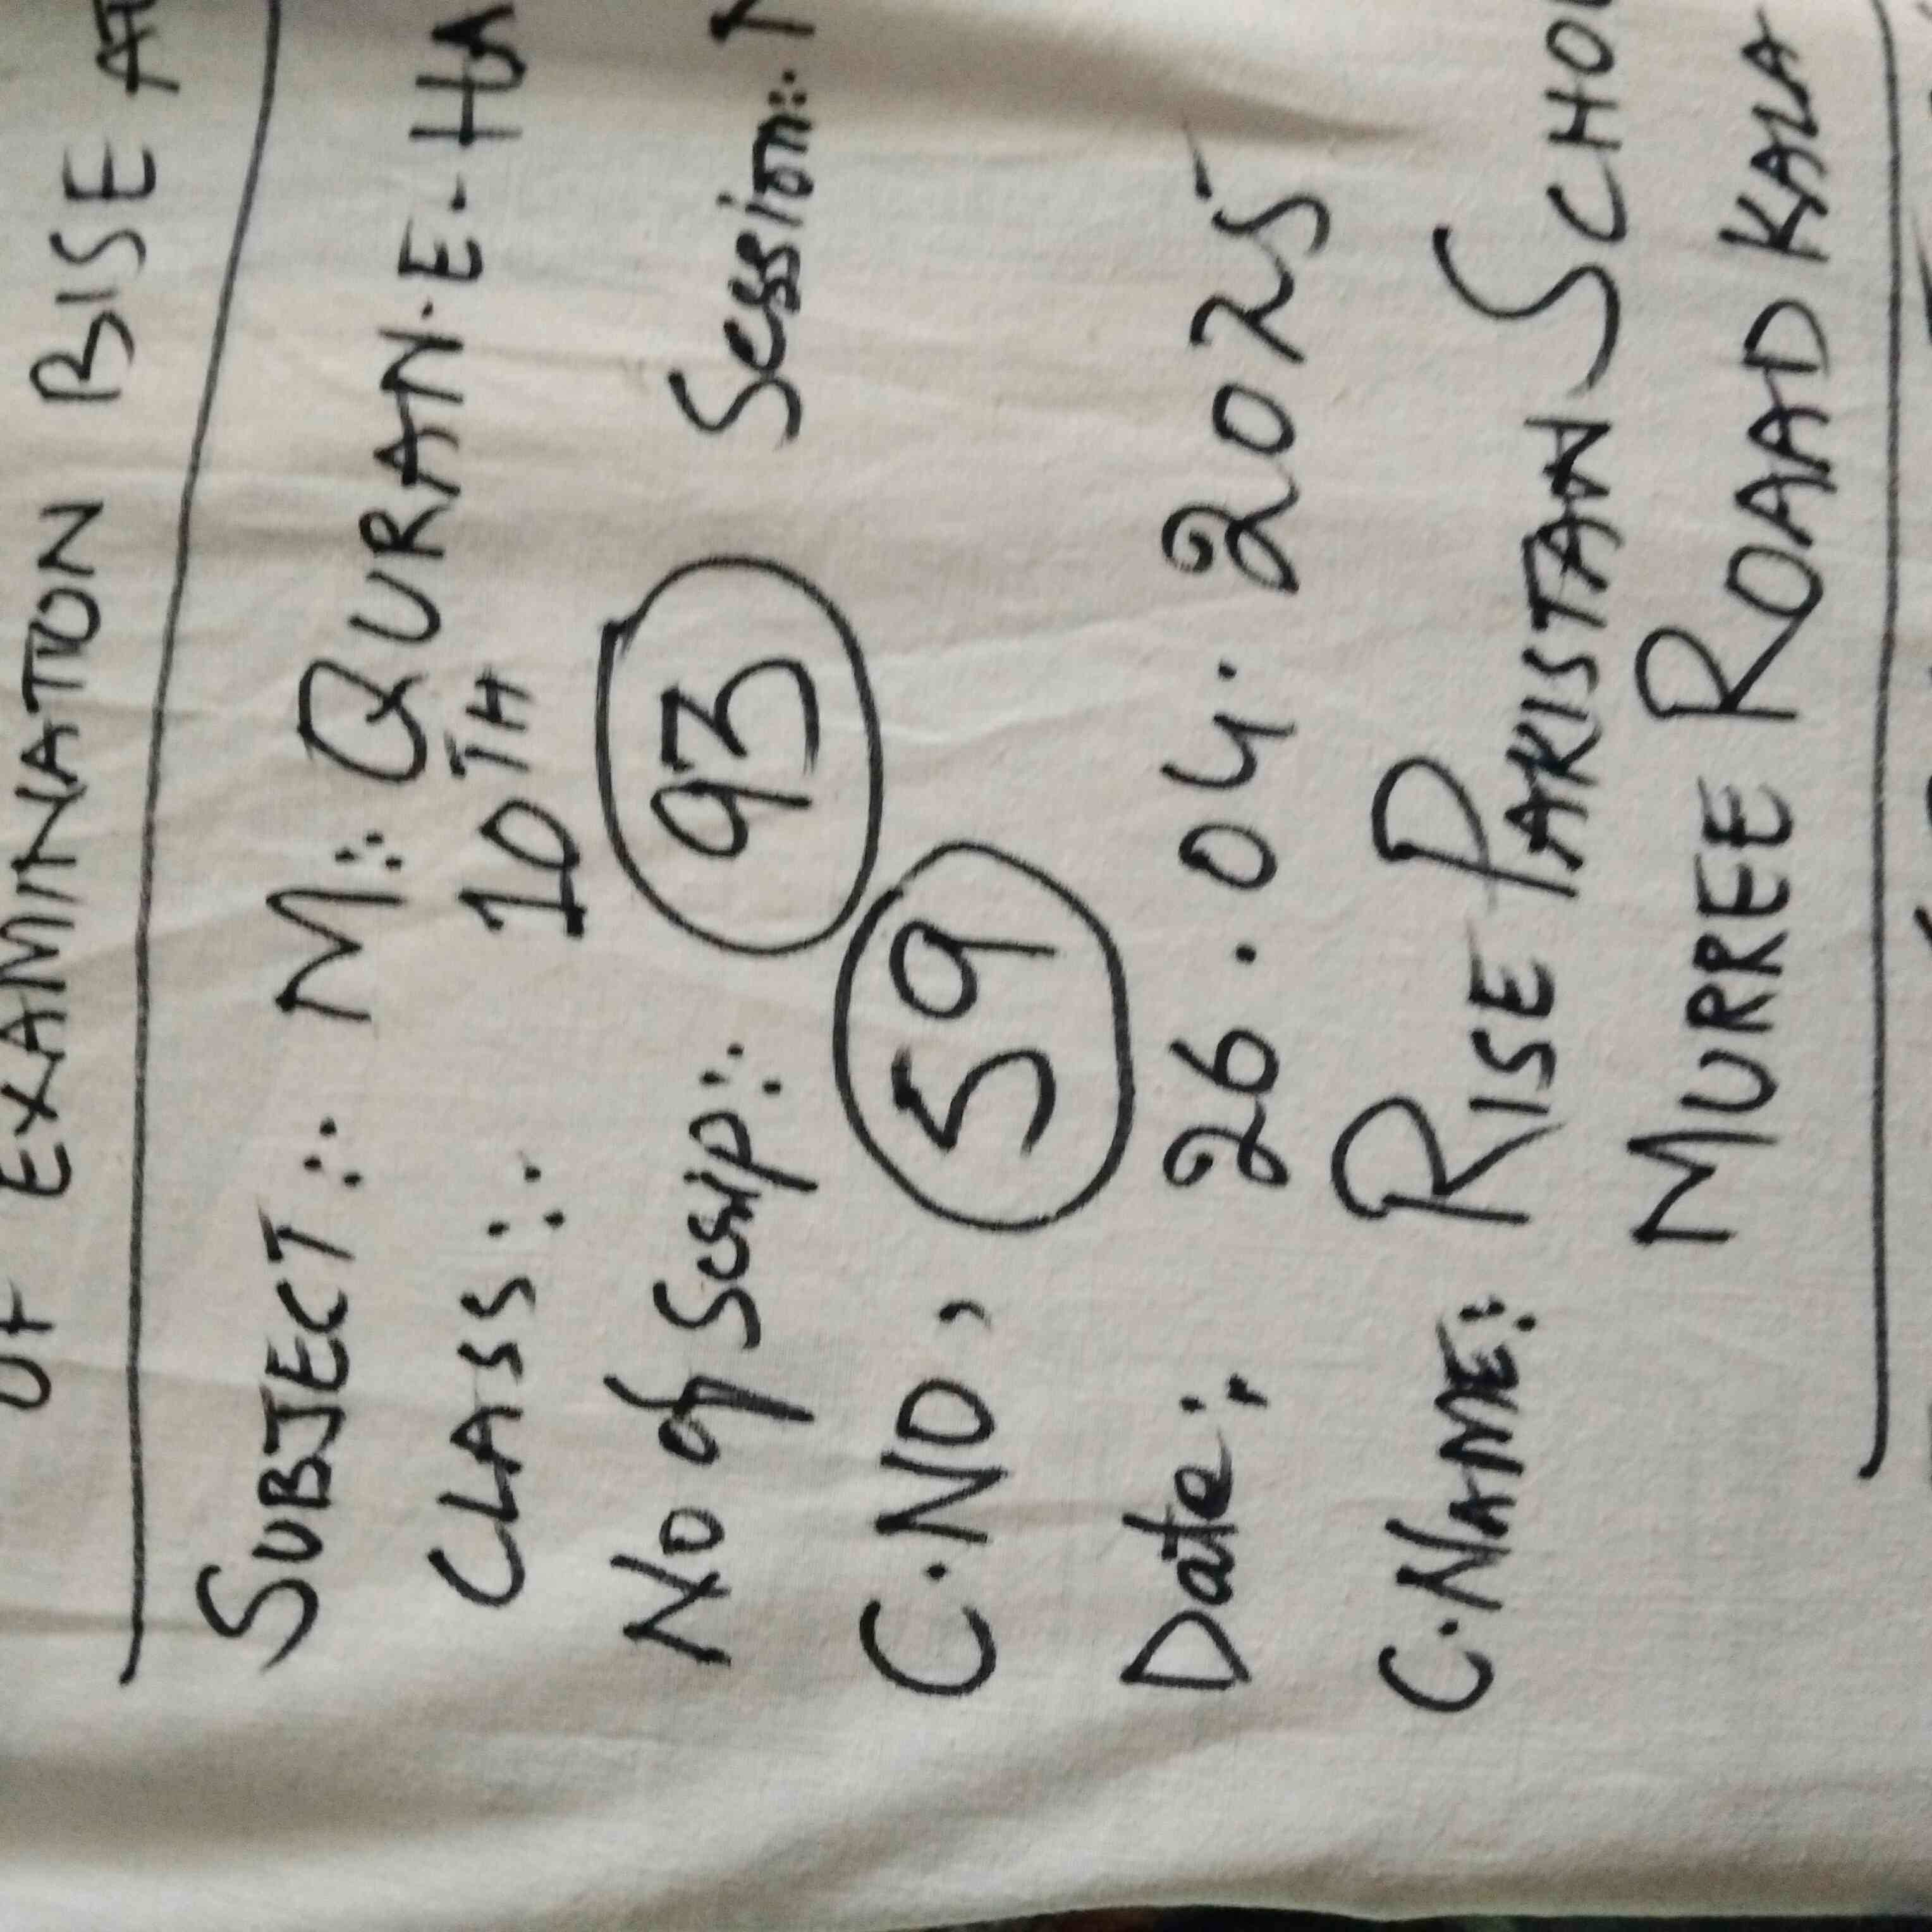 OF EXAMINATION BISE AT
SUBJECT:. M:. QURAN.E-HA
CLASS:. 10TH
No of Scrip:. 93 Session:.
C.NO, 59
Date:, 26.04.2025
C.NAME: RISE PAKISTAN SCHO
MURREE ROAAD KALA